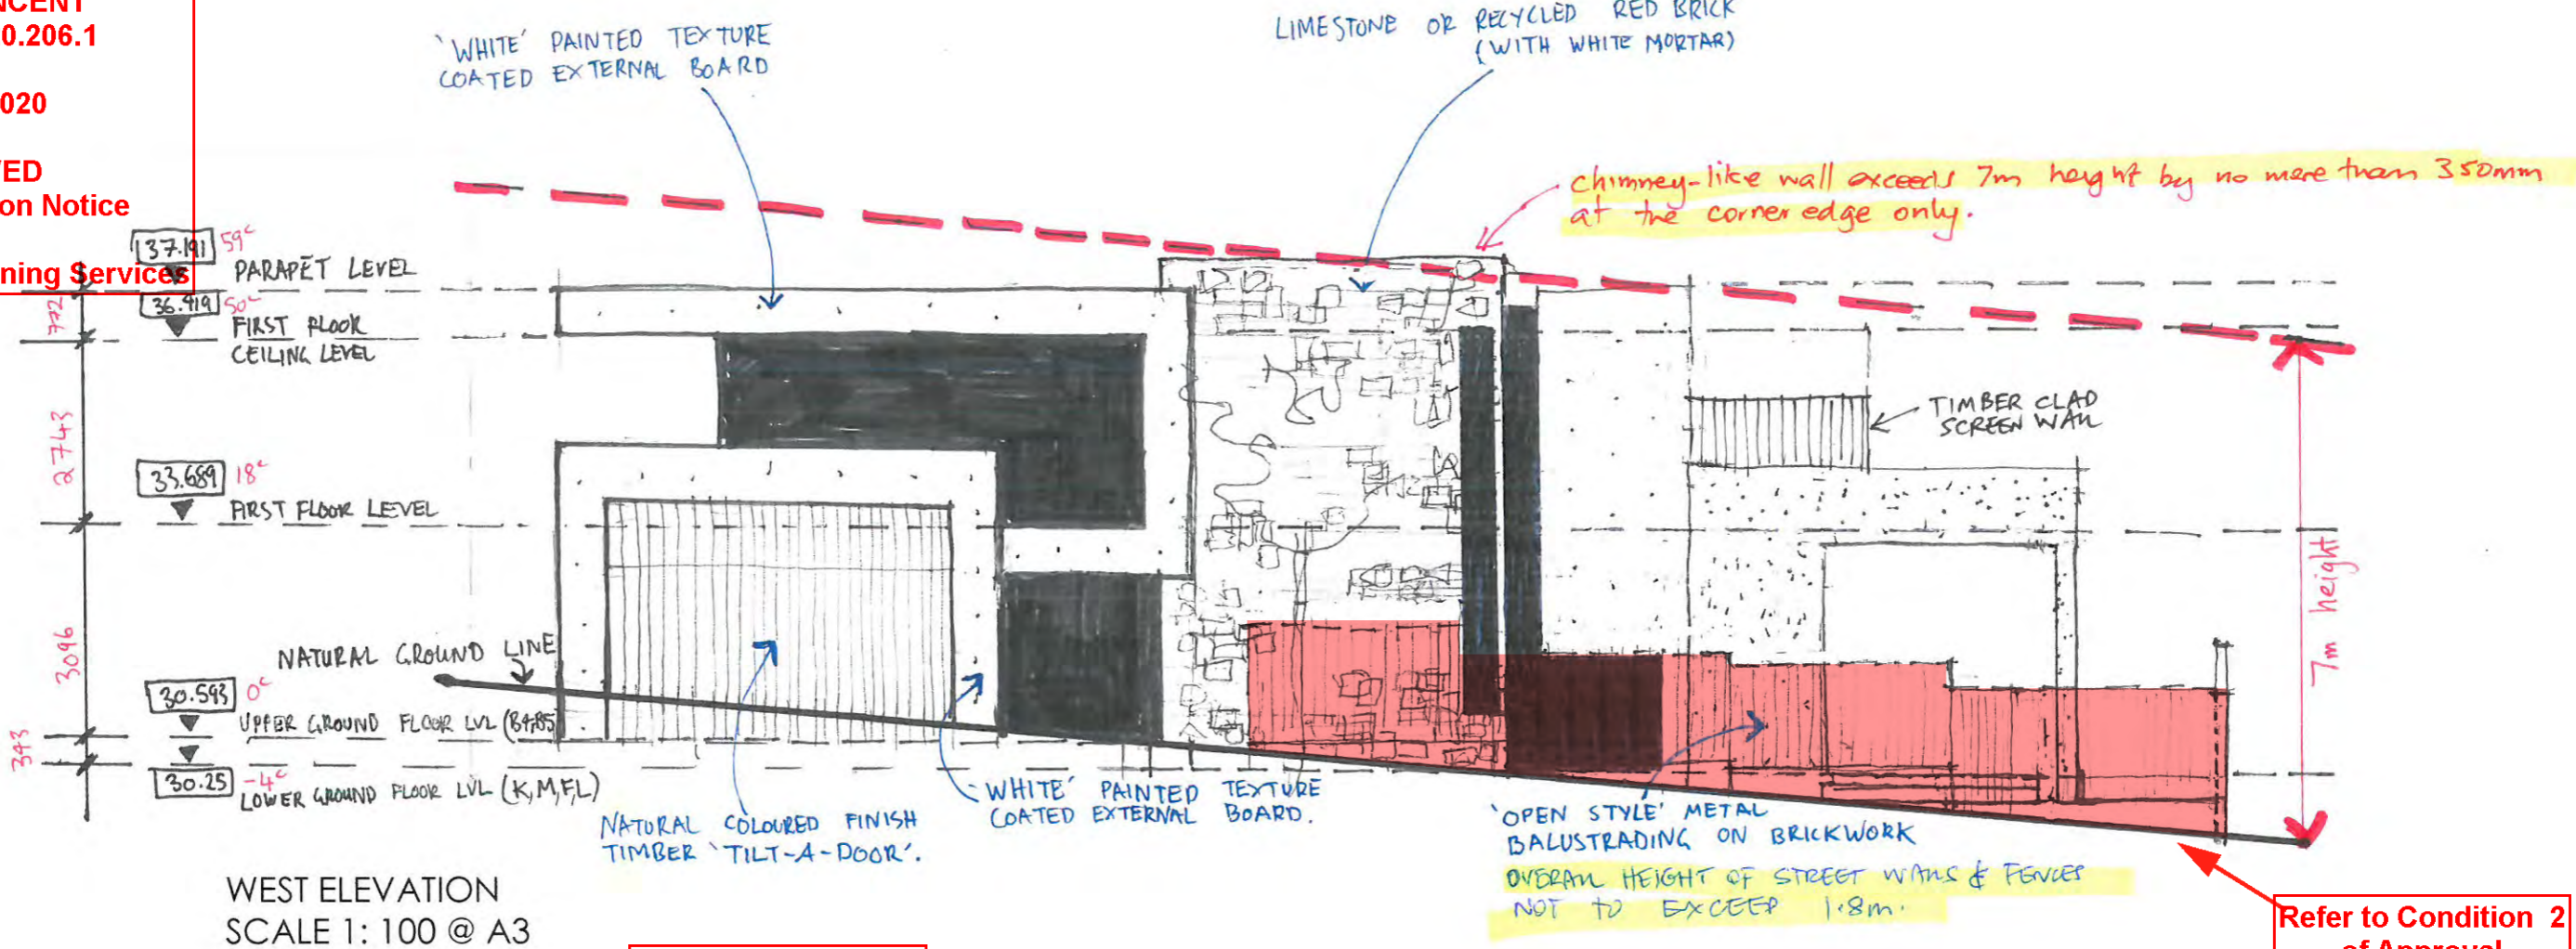 NCENT
0.206.1
020
VED
on Notice
ning Services
'WHITE' PAINTED TEXTURE
COATED EXTERNAL BOARD
LIMESTONE OR RECYCLED RED BRICK
(WITH WHITE MORTAR)
chimney-like wall exceeds 7m height by no more than 350mm
at the corner edge only.
37.191 59c
PARAPET LEVEL
36.419 50c
FIRST FLOOR
CEILING LEVEL
772
2743
33.689 18c
FIRST FLOOR LEVEL
3096
TIMBER CLAD
SCREEN WALL
7m height
NATURAL GROUND LINE
30.593 0c
UPPER GROUND FLOOR LVL
343
30.25 -4c
LOWER GROUND FLOOR LVL (K,M,F,L)
NATURAL COLOURED FINISH
TIMBER 'TILT-A-DOOR'.
'WHITE' PAINTED TEXTURE
COATED EXTERNAL BOARD.
'OPEN STYLE' METAL
BALUSTRADING ON BRICKWORK
OVERALL HEIGHT OF STREET WALLS & FENCES
NOT TO EXCEED 1.8m.
WEST ELEVATION
SCALE 1: 100 @ A3
Refer to Condition 2
of Approval